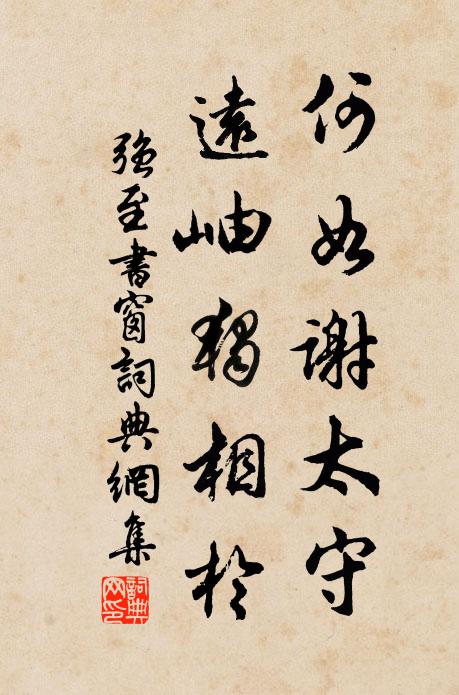 何如謝太守
遠岫獨相於
強至書窗詞典網集
詞典
网印